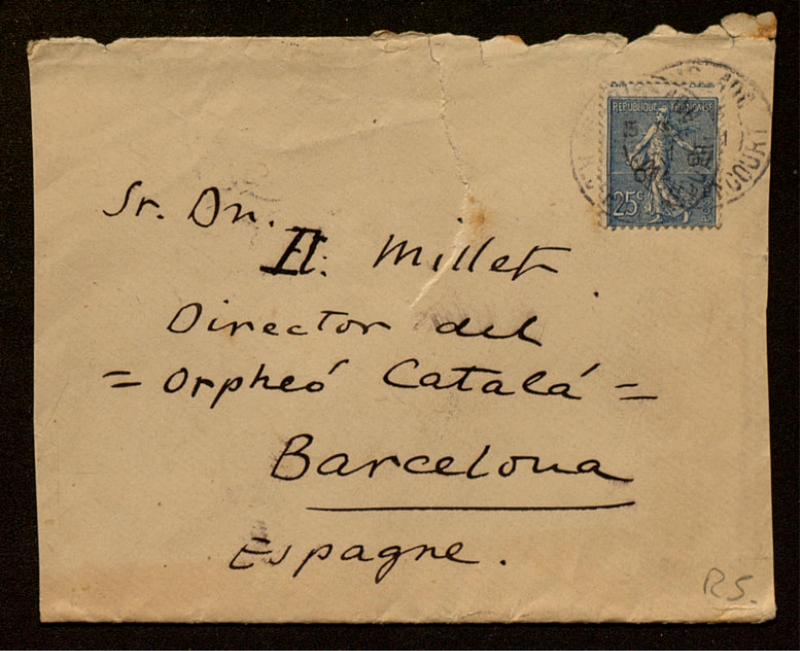 RÉPUBLIQUE FRANÇAISE
25c
Sr. Dn.
Ll. Millet
Director del
= Orpheó Catalá =
Barcelona
Espagne.
RS.